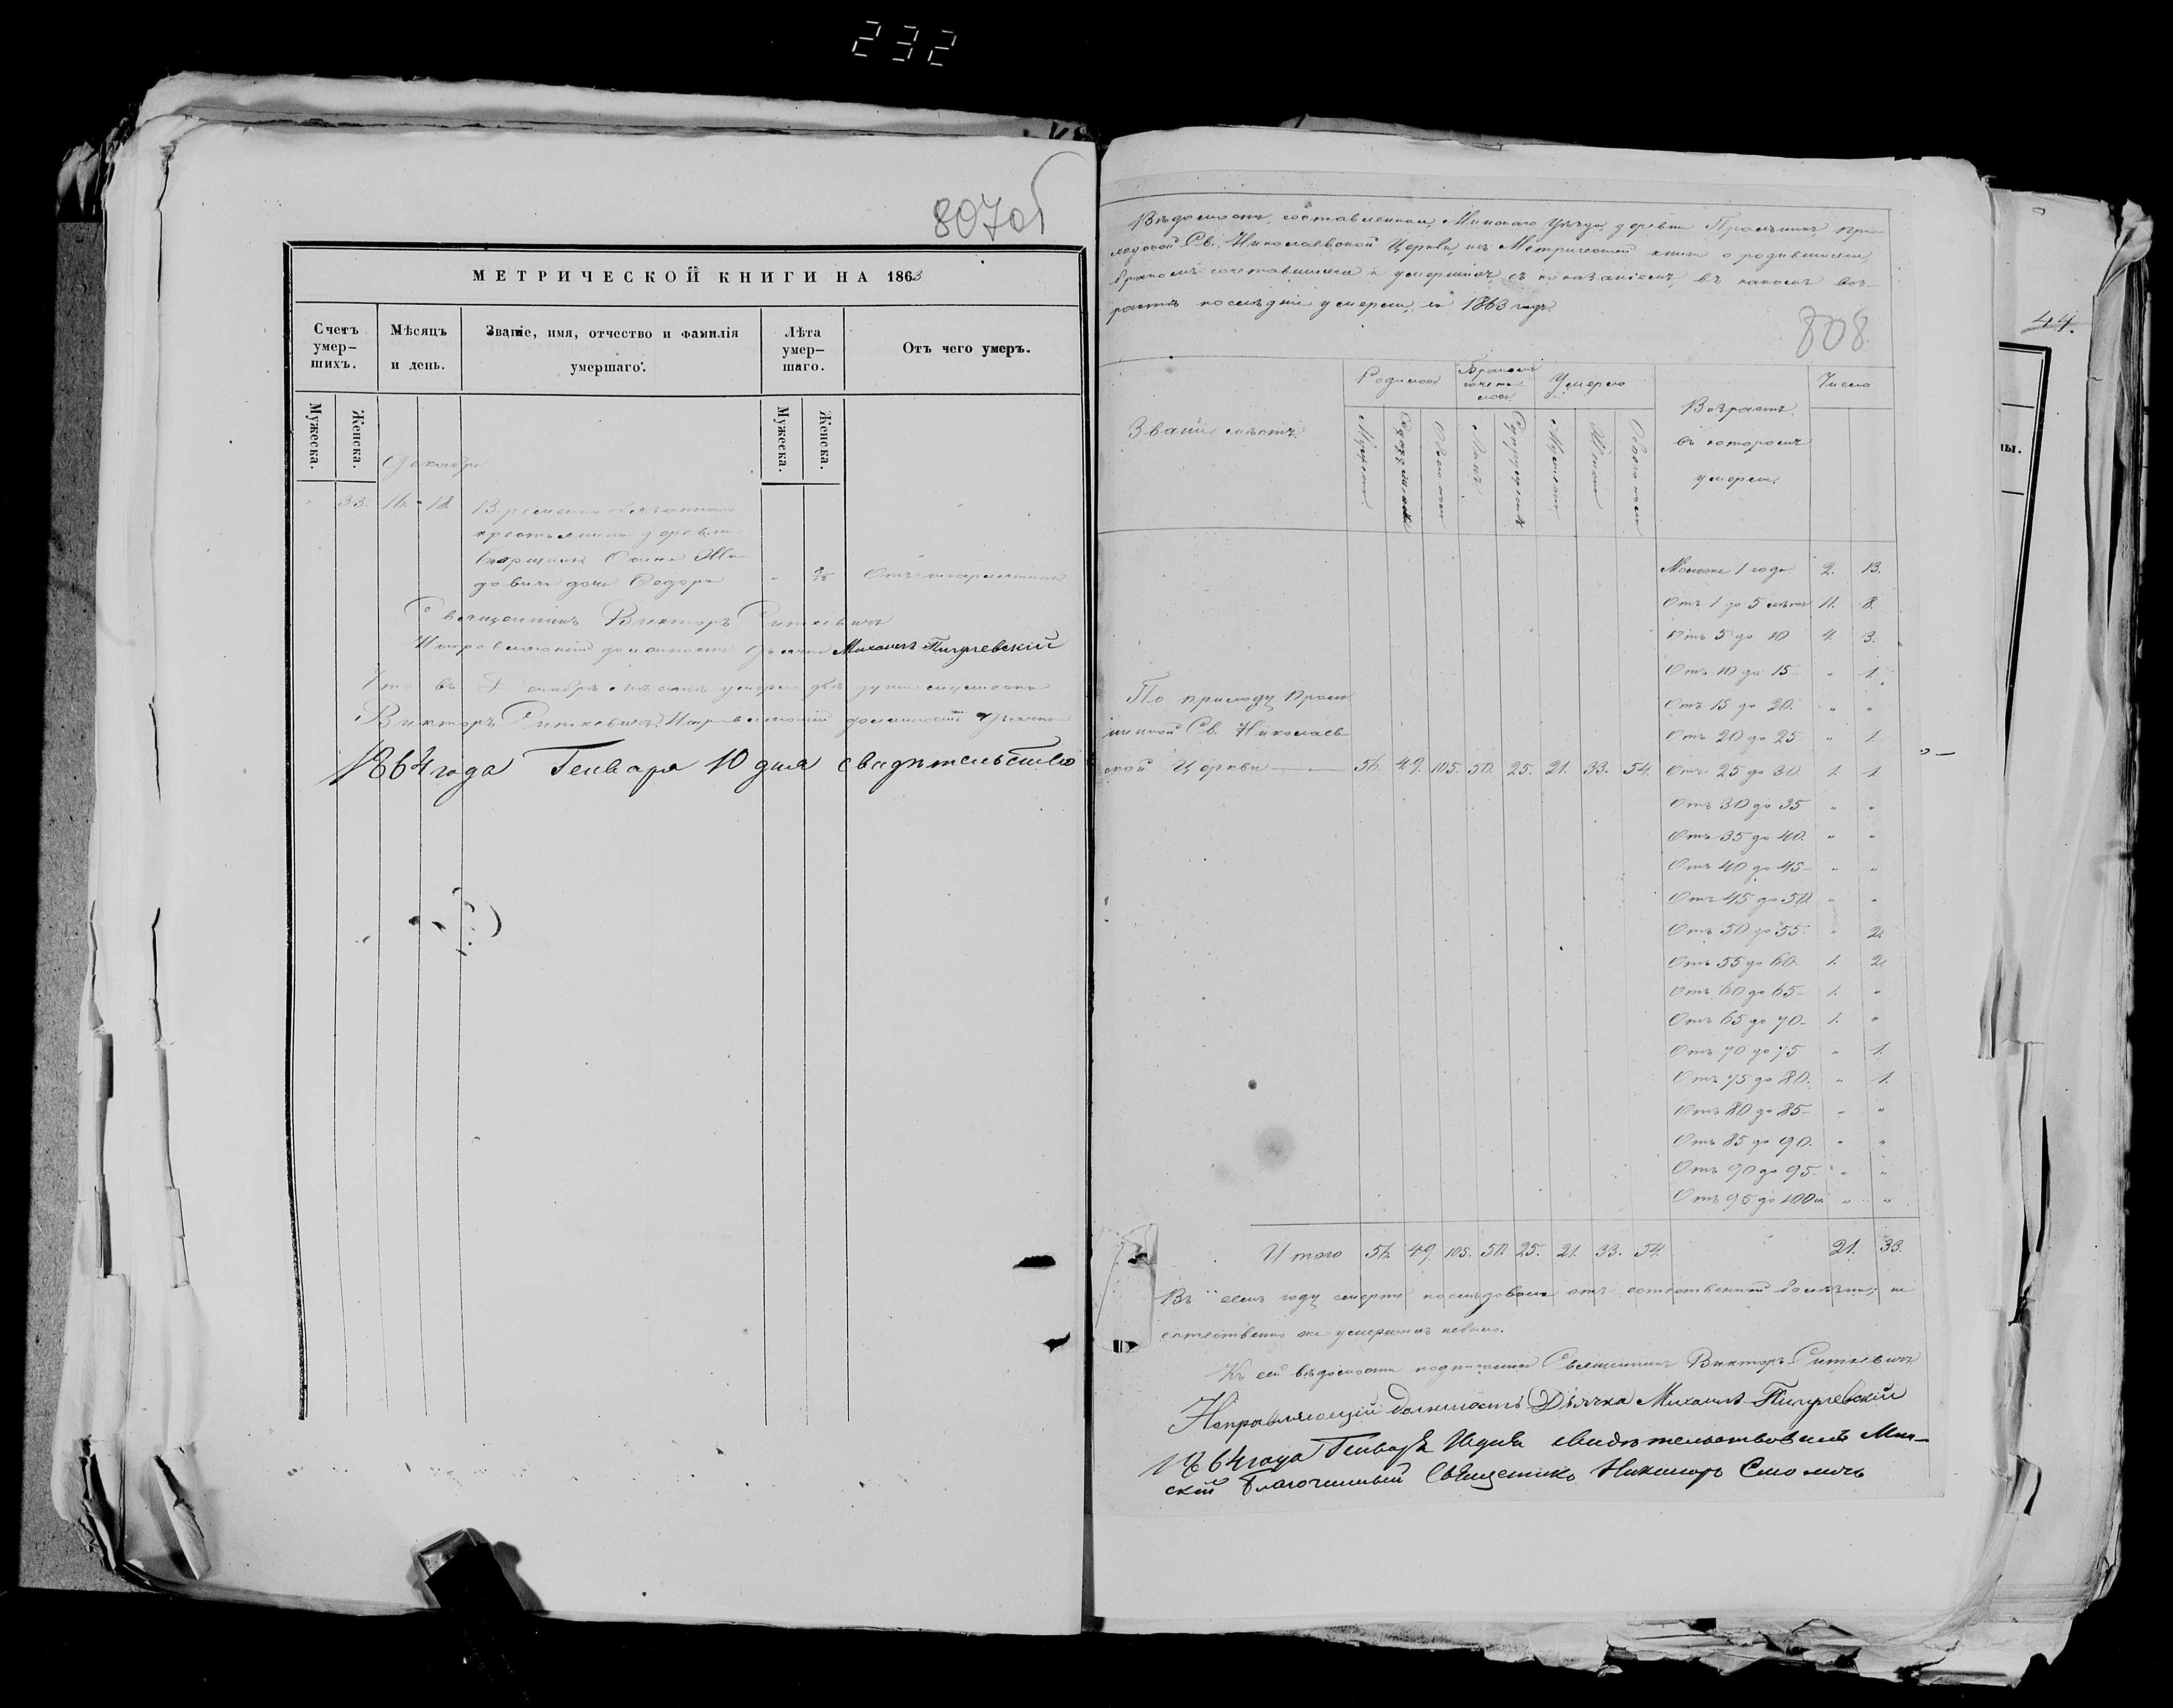 232
807 об
МЕТРИЧЕСКОЙ КНИГИ НА 1863
Счетъ умер-шихъ.
Мѣсяцъ и день.
Званіе, имя, отчество и фамилія умершаго.
Лѣта умер-шаго.
Отъ чего умеръ.
Мужеска.
Женска.
Мужеска.
Женска.
Декабрь
" 33. 16. 18. Временно обязаннаго
крестьянина деревни
дочь Ѳодора "
Священникъ Викторъ Ситкевичъ
Исправляющій должность Дьячка Михаилъ Пигулевскій
Что въ Декабрѣ мѣсяцѣ умерло двѣ души
Викторъ Ситкевичъ. Исправляющій должность Дьячка
1864 года Генваря 10 дня свидѣтельство
Вѣдомость, составленная, Минскаго Уѣзда деревни при-
ходской Св. Николаевской Церкви, изъ Метрической книги о родившихся,
бракомъ сочетавшихся и умершихъ, съ показаніемъ, въ какомъ воз-
растѣ послѣдніе умерли, за 1863 годъ.
808
Званіе мѣстъ
Родилось
Бракомъ сочета-лось
Умерло
Возрастъ
въ которомъ
умерли
Число
Мужеска
Обоего пола
Лицъ
Супружествъ
Мужеска
Женска
Обоего пола
Моложе 1 года 2. 13.
Отъ 1 до 5 лѣтъ 11. 8.
Отъ 5 до 10 4. 3.
Отъ 10 до 15 " 1.
Отъ 15 до 20. " "
Отъ 20 до 25 " 1.
По приходу
Св. Николаев-
ской Церкви — 56. 49. 105. 50. 25. 21. 33. 54. Отъ 25 до 30. 1. 1.
Отъ 30 до 35 " "
Отъ 35 до 40. " "
Отъ 40 до 45 " "
Отъ 45 до 50. " "
Отъ 50 до 55. " 2.
Отъ 55 до 60 1. 2.
Отъ 60 до 65 1. "
Отъ 65 до 70 1. "
Отъ 70 до 75 " 1.
Отъ 75 до 80. " 1.
Отъ 80 до 85 " "
Отъ 85 до 90. " "
Отъ 90 до 95. " "
Отъ 95 до 100 " "
Итого 56. 49. 105. 50. 25. 21. 33. 54. 21. 33.
Въ семъ году смерть послѣдовала отъ естественной болѣзни; не
естественно же умершихъ небыло.
Къ сей вѣдомости подписались Священникъ Викторъ Ситкевичъ
Исправляющій должность Дьячка Михаилъ Пигулевскій
1864 года Генваря 10 дня свидѣтельствовалъ Мин-
скій Благочинный Священникъ Никаноръ Смоличъ
44.
ны.